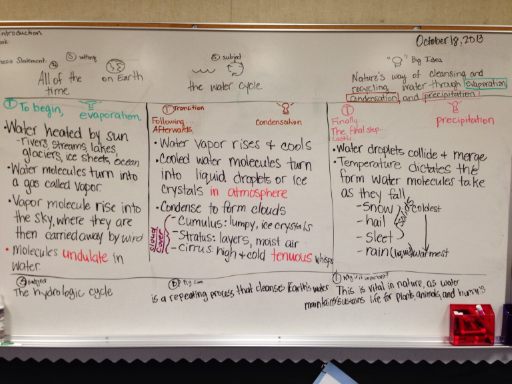 Introduction
October 18, 2013
Thesis Statement:
③ setting
② subject
"" Big Idea
All of the time
on Earth
the water cycle
Nature's way of cleansing and
recycling water through evaporation,
condensation and precipitation!
① To begin,
evaporation
• Water heated by sun
- rivers, streams, lakes,
glaciers, ice sheets, ocean
• Water molecules turn into
a gas called vapor
• Vapor molecule rise into
the sky, where they are
then carried away by wind
• Molecules undulate in
water.
① Transition
Following
Afterwards,
condensation
• Water vapor rises & cools
• Cooled water molecules turn
into liquid droplets or ice
crystals in atmosphere
• Condense to form clouds
- Cumulus: lumpy, ice crystals
- Stratus: layers, moist air
- cirrus: high & cold tenuous wisps
①
Finally
The final step
Lastly
precipitation
• Water droplets collide & merge
• Temperature dictates the
form water molecules take
as they fall.
- snow
- hail
- sleet
- rain (liquid)
solids
coldest
warmest
subject
The hydrologic cycle
Big Idea
is a repeating process that cleanses Earth's water
Why is it important
This is vital in nature, as water
maintains/sustains life for plants, animals, and humans